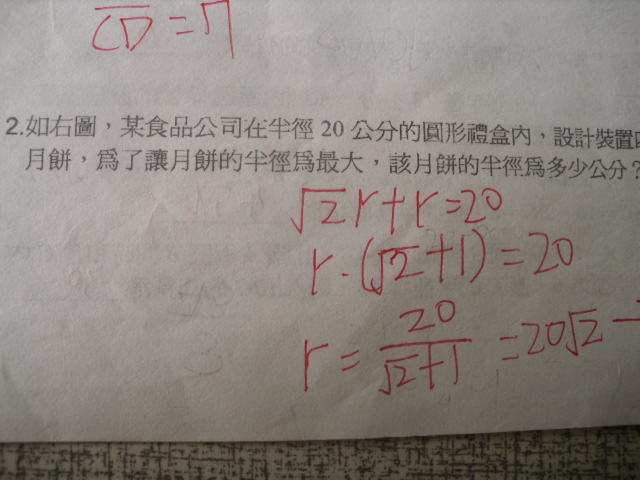 CD = π
2.如右圖，某食品公司在半徑 20 公分的圓形禮盒內，設計裝置
月餅，為了讓月餅的半徑為最大，該月餅的半徑為多少公分？
√2r+r=20
r·(√2+1)=20
r = 20/(√2+1) =20√2 −